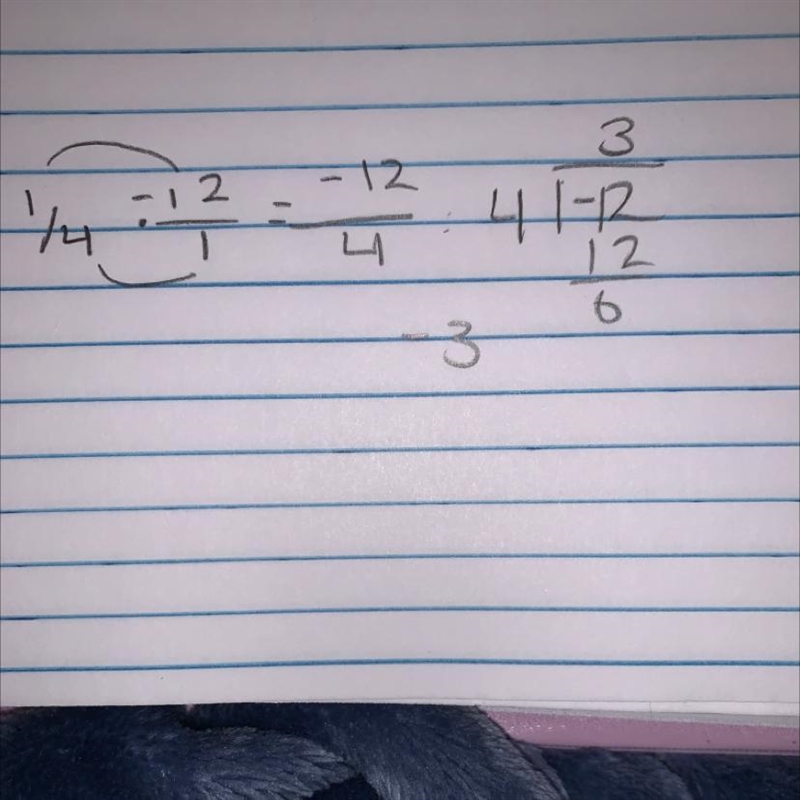 1/4 · -12/1 = -12/4 : 4 | -12
3
12
6
-3